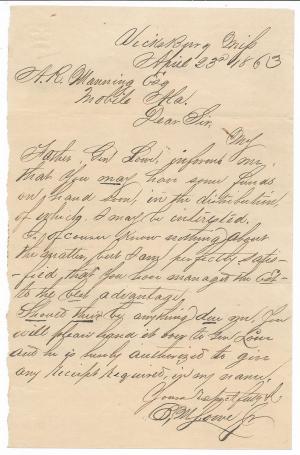 Vicksburg Miss
April 23d 1863
A. R. Manning Esq
Mobile Ala.
Dear Sir,
My
Father, Gen Lowe, informs me,
that you may have some funds
on hand soon, in the distribution
of which, I may be interested.
I, of course know nothing about
the matter, but I am perfectly satis-
fied, that you have managed the Est-
to the best advantage.
Should there be anything due me, you
will please hand it over to Gen Lowe
and he is hereby authorized to give
any receipt required, in my name.
Yours respectfully &
Lowe Jr